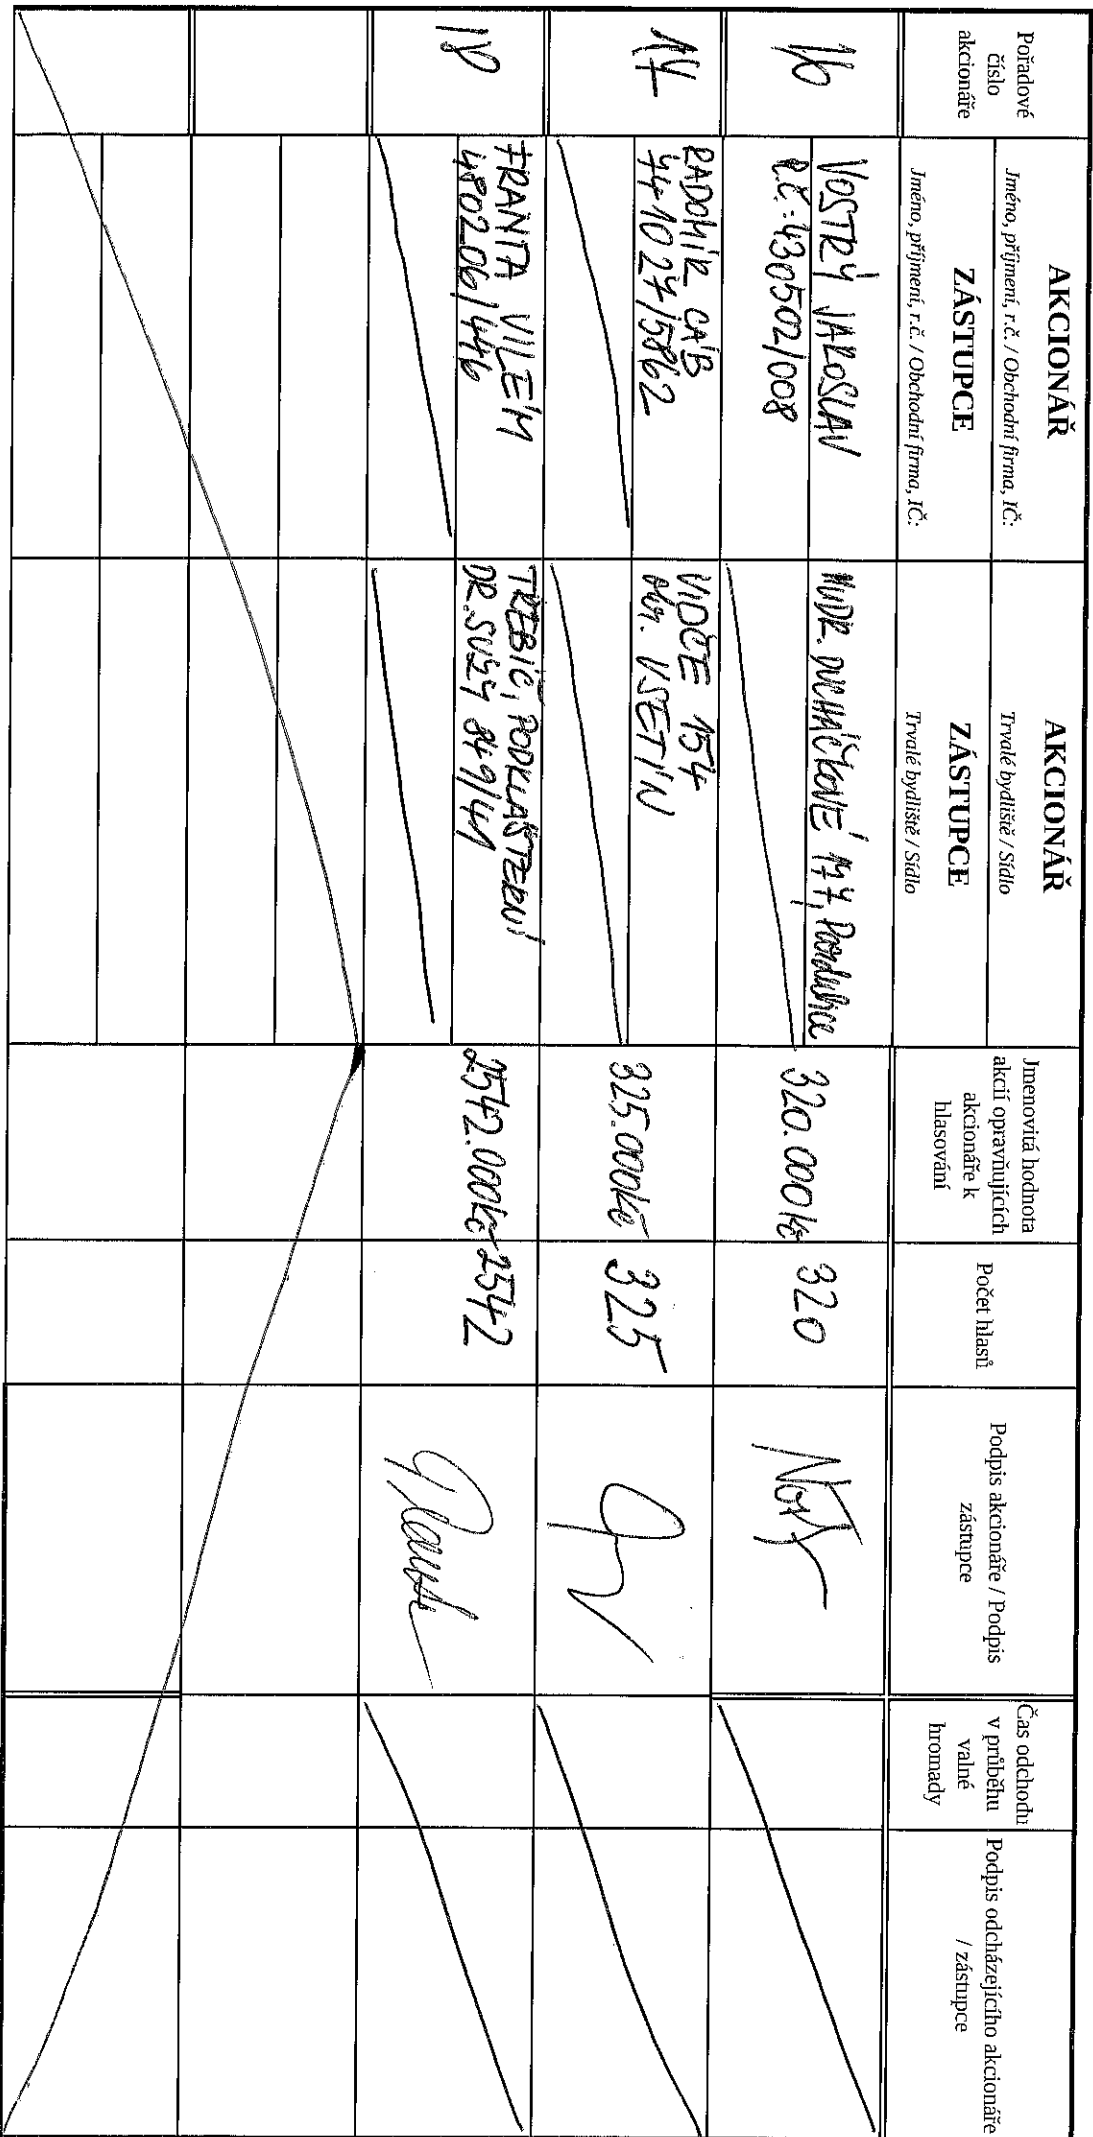 Pořadové
číslo
akcionáře
AKCIONÁŘ
Jméno, příjmení, r.č. / Obchodní firma, IČ:
ZÁSTUPCE
Jméno, příjmení, r.č. / Obchodní firma, IČ:
AKCIONÁŘ
Trvalé bydliště / Sídlo
ZÁSTUPCE
Trvalé bydliště / Sídlo
Jmenovitá hodnota
akcií opravňujících
akcionáře k
hlasování
Počet hlasů
Podpis akcionáře / Podpis
zástupce
Čas odchodu
v průběhu
valné
hromady
Podpis odcházejícího akcionáře
/ zástupce
16
VOSTRÝ JAROSLAV
R.Č.-430502/008
MUDR. DUCHÁČKOVÉ 177, Pardubice
320.000Kč
320
17
RADOMÍR CÁB
771027/5862
VIDČE 154
okr. VSETÍN
325.000Kč
325
18
FRANTA VILÉM
480206/446
TŘEBÍČ, PODKLÁŠTERNÍ
DR. SUZY 849/41
2542.000Kč
2542